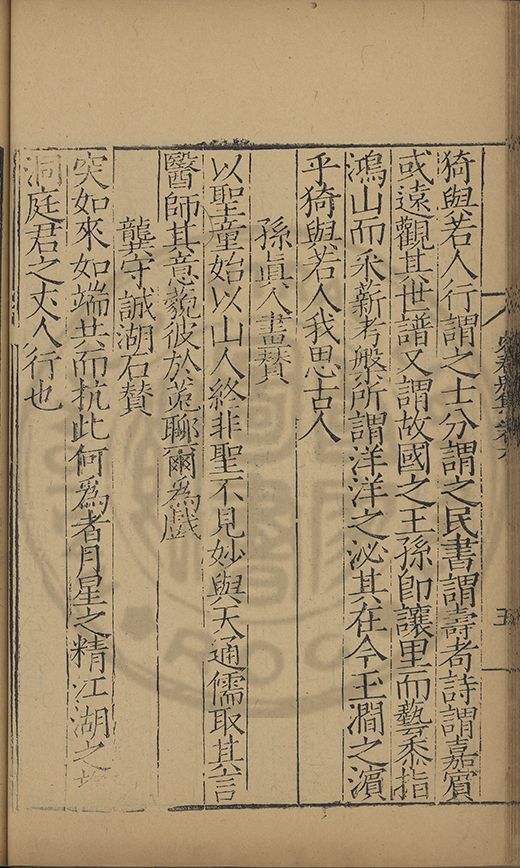 猗與若人行謂之士分謂之民書謂壽耉詩謂嘉賓
或遠觀其世譜又謂故國之王孫即讓里而藝黍指
鴻山而釆薪考槃所謂洋洋之泌其在今玉澗之濵
乎猗與若人我思古人
孫眞人畫賛
以聖童始以山人終非聖不見妙與天通儒取其言
醫師其意藐彼於菟聊爾爲戲
龔守誠湖石賛
突如來如端共而抗此何爲者月星之精江湖之
洞庭君之丈人行也
五